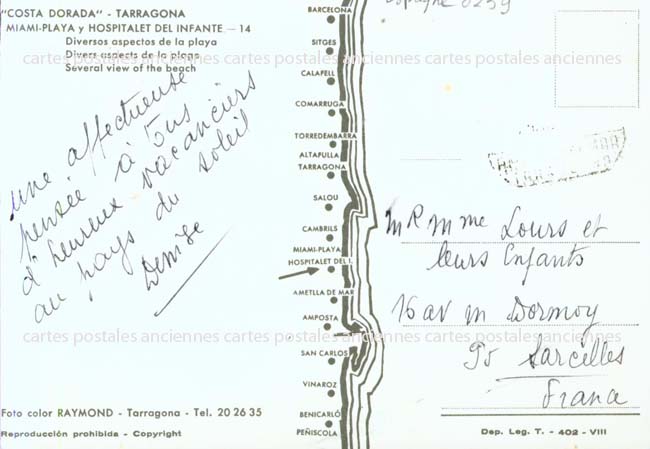 "COSTA DORADA" - TARRAGONA
MIAMI-PLAYA y HOSPITALET DEL INFANTE - 14
Diversos aspectos de la playa
Divers aspects de la plage
Several view of the beach
une affectueuse
pensée à tous
d'heureux vacanciers
au pays du soleil
Denise
Foto color RAYMOND - Tarragona - Tel. 20 26 35
Reproducción prohibida - Copyright
BARCELONA
SITGES
CALAFELL
COMARRUGA
TORREDEMBARRA
ALTAFULLA
TARRAGONA
SALOU
CAMBRILS
MIAMI-PLAYA
HOSPITALET DEL I.
AMETLLA DE MAR
AMPOSTA
SAN CARLOS
VINAROZ
BENICARLÓ
PEÑISCOLA
Espagne 0259
MR Mme Lours et
leurs Enfants
16 av M Dormoy
95 Sarcelles
France
Dep. Leg. T. - 402 - VIII
cartes postales anciennes cartes postales anciennes cartes postales anciennes
cartes postales anciennes cartes postales anciennes cartes postales anciennes